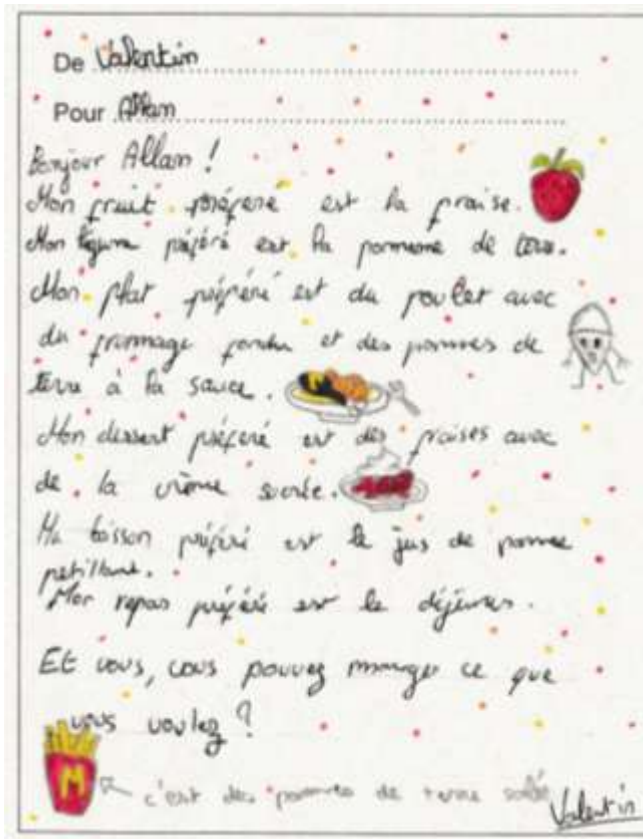 De Valentin
Pour Allan
Bonjour Allan !
Mon fruit préferé est la fraise.
Mon légume préféré est la pomme de terre.
Mon plat préféré est du poulet avec
du fromage fondu et des pommes de
terre à la sauce.
Mon dessert préferé est des fraises avec
de la crème sucrée.
Ma boisson préféré est le jus de pomme
petillant.
Mon repas préféré est le déjeuner.
Et vous, vous pouvez manger ce que
vous voulez ?
M
c'est des pommes de terre salé
Valentin